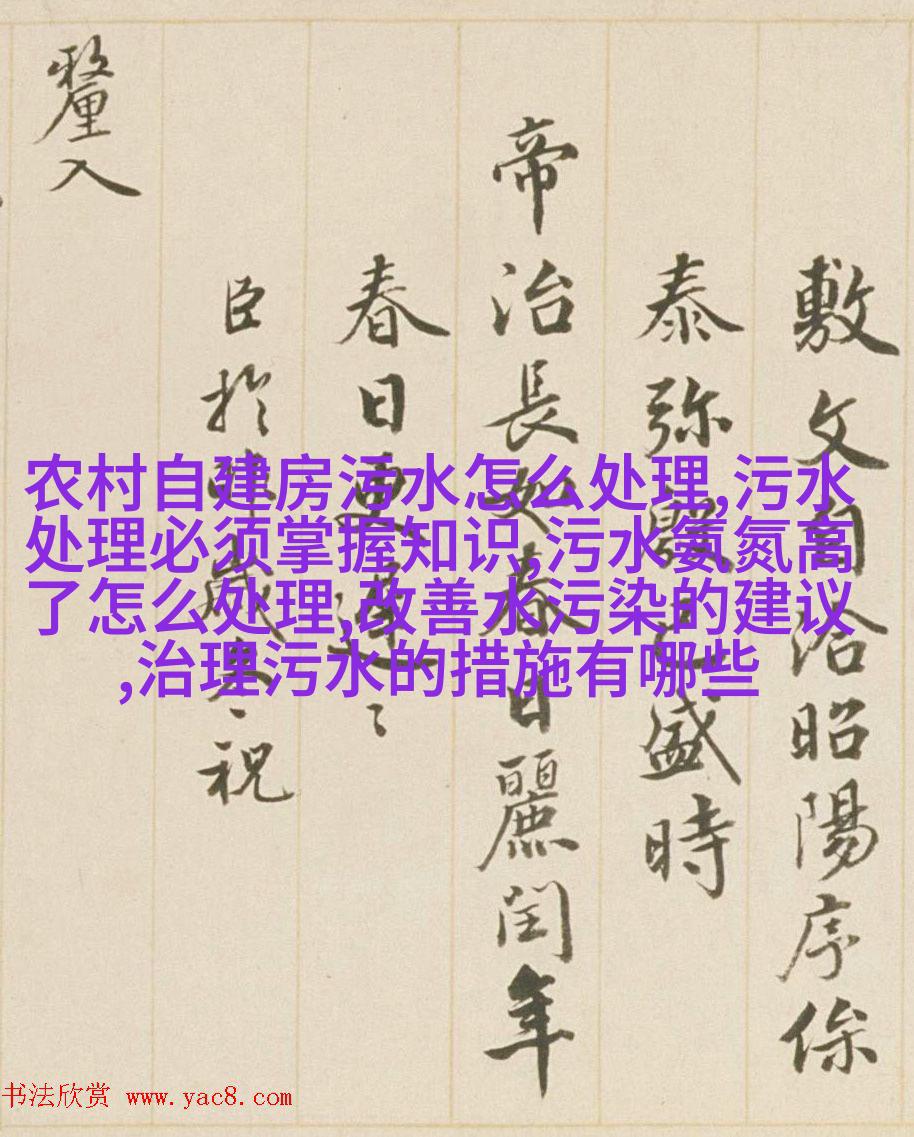 敷文自洽昭陽序條
泰弥殷之盛時
帝治長如春日麗閏年
春日更遲〻
臣於歲寒〻祝
釐入
农村自建房污水怎么处理,污水
处理必须掌握知识,污水氨氮高
了怎么处理,改善水污染的建议
,治理污水的措施有哪些
书法欣赏 www.yac8.com